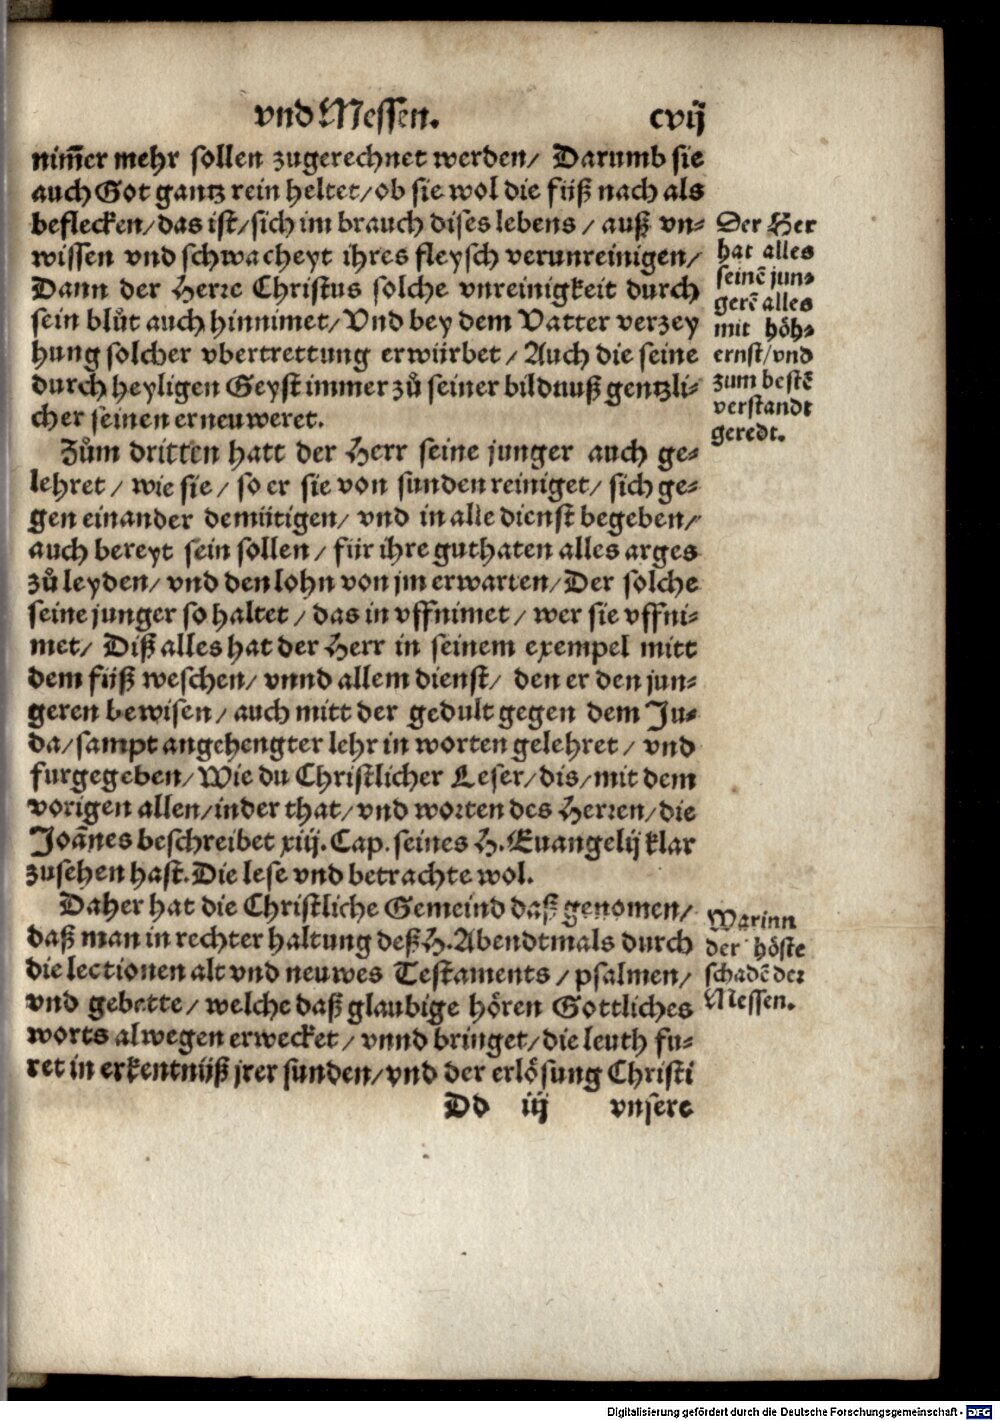 vnd Messen. cvij
nim̄er mehr sollen zugerechnet werden/ Darumb sie
auch Got gantz rein heltet/ob sie wol die füß nach als
beflecken/das ist/sich im brauch dises lebens/ auß vn⸗
wissen vnd schwacheyt ihres fleysch verunreinigen/
Dann der Herre Christus solche vnreinigkeit durch
sein blůt auch hinnimet/Vnd bey dem Vatter verzey
hung solcher vbertrettung erwürbet/ Auch die seine
durch heyligen Geyst immer zů seiner bildnuß gentzli⸗
cher seinen erneuweret.
Der Her
hat alles
seinē jun⸗
gerē alles
mit höh⸗
ernst/vnd
zum bestē
verstandt
geredt.
Zům dritten hatt der Herr seine junger auch ge⸗
lehret/ wie sie/ so er sie von sunden reiniget/ sich ge⸗
gen einander demütigen/ vnd in alle dienst begeben/
auch bereyt sein sollen/ für ihre guthaten alles arges
zů leyden/ vnd den lohn von jm erwarten/Der solche
seine junger so haltet/ das in vffnimet/ wer sie vffni⸗
met/ Diß alles hat der Herr in seinem exempel mitt
dem füß weschen/ vnnd allem dienst/ den er den jun⸗
geren bewisen/ auch mitt der gedult gegen dem Ju⸗
da/sampt angehengter lehr in worten gelehret/ vnd
furgegeben/Wie du Christlicher Leser/dis/mit dem
vorigen allen/in der that/vnd worten des Herren/die
Joān̄es beschreibet xiij. Cap. seines H. Euangelij klar
zusehen hast. Die lese vnd betrachte wol.
Daher hat die Christliche Gemeind daß genomen/
daß man in rechter haltung deß H. Abendtmals durch
die lectionen alt vnd neuwes Testaments/ psalmen/
vnd gebette/ welche daß glaubige hören Gottliches
worts alwegen erwecket/ vnnd bringet/die leuth fu⸗
ret in erkentnüß jrer sunden/vnd der erlösung Christi
Warinn
der höste
schadē der
Messen.
Dd iij vnsere
Digitalisierung gefördert durch die Deutsche Forschungsgemeinschaft - DFG